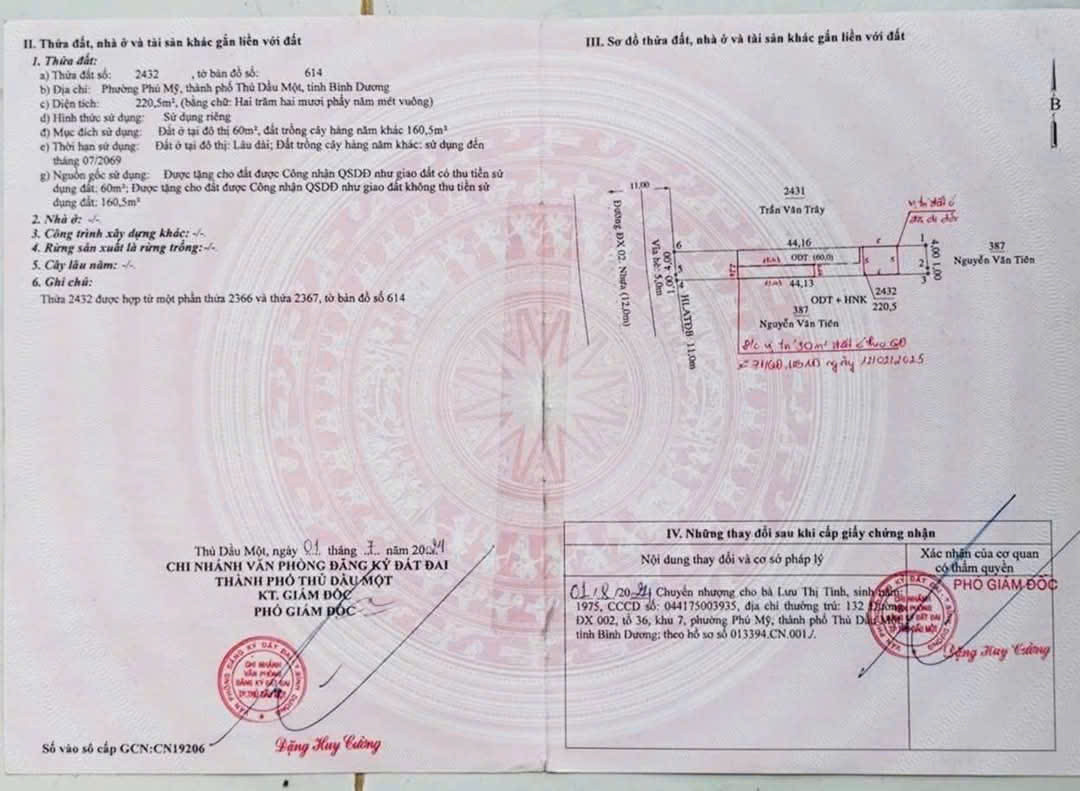 II. Thửa đất, nhà ở và tài sản khác gắn liền với đất
1. Thửa đất:
a) Thửa đất số: 2432 , tờ bản đồ số: 614
b) Địa chỉ: Phường Phú Mỹ, thành phố Thủ Dầu Một, tỉnh Bình Dương
c) Diện tích: 220,5m², (bằng chữ: Hai trăm hai mươi phẩy năm mét vuông)
d) Hình thức sử dụng: Sử dụng riêng
đ) Mục đích sử dụng: Đất ở tại đô thị 60m², đất trồng cây hàng năm khác 160,5m²
e) Thời hạn sử dụng: Đất ở tại đô thị: Lâu dài; Đất trồng cây hàng năm khác: sử dụng đến
tháng 07/2069
g) Nguồn gốc sử dụng: Được tặng cho đất được Công nhận QSDĐ như giao đất có thu tiền sử
dụng đất: 60m²; Được tặng cho đất được Công nhận QSDĐ như giao đất không thu tiền sử
dụng đất: 160,5m²
2. Nhà ở: -/-
3. Công trình xây dựng khác: -/-
4. Rừng sản xuất là rừng trồng:-/-
5. Cây lâu năm: -/-
6. Ghi chú:
Thửa 2432 được hợp từ một phần thửa 2366 và thửa 2367, tờ bản đồ số 614
Thủ Dầu Một, ngày 01 tháng 7 năm 2024
CHI NHÁNH VĂN PHÒNG ĐĂNG KÝ ĐẤT ĐAI
THÀNH PHỐ THỦ DẦU MỘT
KT. GIÁM ĐỐC
PHÓ GIÁM ĐỐC
VĂN PHÒNG ĐĂNG KÝ ĐẤT ĐAI T. BÌNH DƯƠNG
CHI NHÁNH
VĂN PHÒNG
ĐĂNG KÝ ĐẤT ĐAI
TP. THỦ DẦU MỘT
Đặng Huy Cường
Số vào sổ cấp GCN:CN19206
III. Sơ đồ thửa đất, nhà ở và tài sản khác gắn liền với đất
B
11,00
2431
Trần Văn Trây
vị trí đất ở
Đường ĐX 02. Nhựa (12.0m)
Vỉa hè: 5,0m
6
5
4
1,00 4,00
HLATĐB 11.0m
44,16
ODT (60,0)
44,13
1
2
3
4,00 1,00
387
Nguyễn Văn Tiên
2432
220,5
ODT + HNK
387
Nguyễn Văn Tiên
đất ở theo QĐ
ngày 12/02/2025
IV. Những thay đổi sau khi cấp giấy chứng nhận
Nội dung thay đổi và cơ sở pháp lý
Xác nhận của cơ quan
có thẩm quyền
01/8/2024 Chuyển nhượng cho bà Lưu Thị Tình, sinh năm:
1975, CCCD số: 044175003935, địa chỉ thường trú: 132 Đường
ĐX 002, tổ 36, khu 7, phường Phú Mỹ, thành phố Thủ Dầu Một,
tỉnh Bình Dương; theo hồ sơ số 013394.CN.001./.
PHÓ GIÁM ĐỐC
VĂN PHÒNG ĐĂNG KÝ ĐẤT ĐAI T. BÌNH DƯƠNG
CHI NHÁNH
VĂN PHÒNG
ĐĂNG KÝ ĐẤT ĐAI
TP. THỦ DẦU MỘT
Đặng Huy Cường